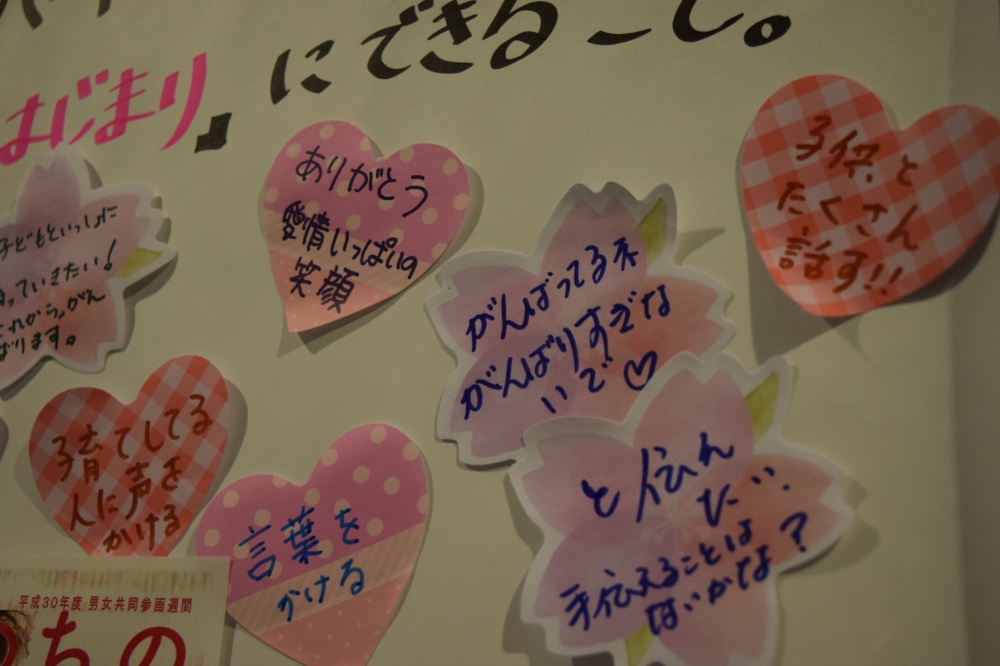 にできるーし。
はじまり』
ありがとう
愛情いっぱいの
笑顔
子供と
たくさん
話す!!
子どもといっしょに
っていきたい!
これから。がん
ばります。
がんばってるネ
がんばりすぎな
いで♡
子育てしてる
人に声を
かける
言葉を
かける
と伝え
たい。
手伝えることは
ないかな?
平成30年度 男女共同参画週間
ちの